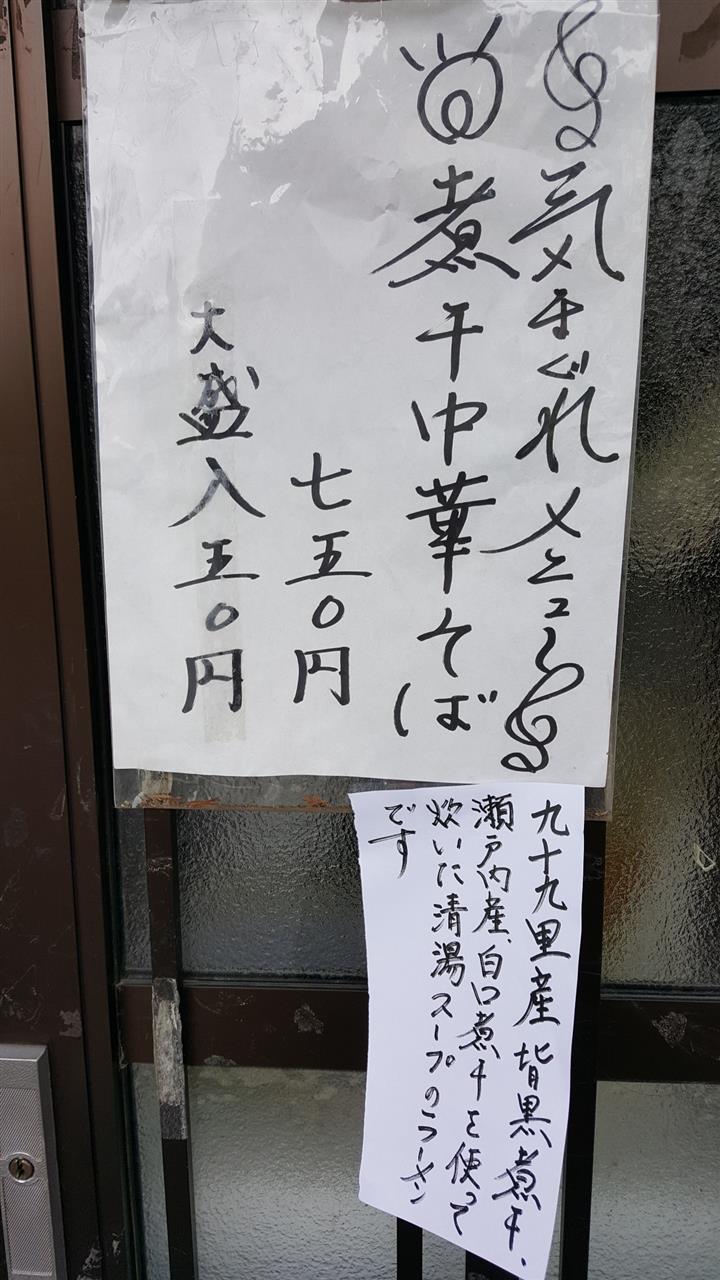 気まぐれメニュー
煮干中華そば
七五〇円
大盛入五〇円
九十九里産背黒煮干、
瀬戸内産、白口煮干を使って
炊いた清湯スープのラーメン
です